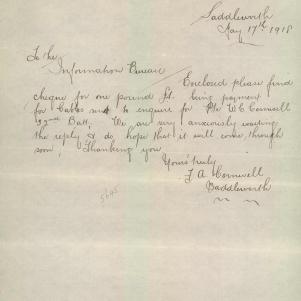 Saddleworth
May 17th 1918
To the
Information Bureau
Enclosed please find
cheque for one pound £1. being payment
for Cables sent to enquire for Pte W C Cornwell
Batt. We are very anxiously waiting
the reply & do hope that it will come through
soon. Thanking you
Yours truly
F A Cornwell
Saddleworth
5645